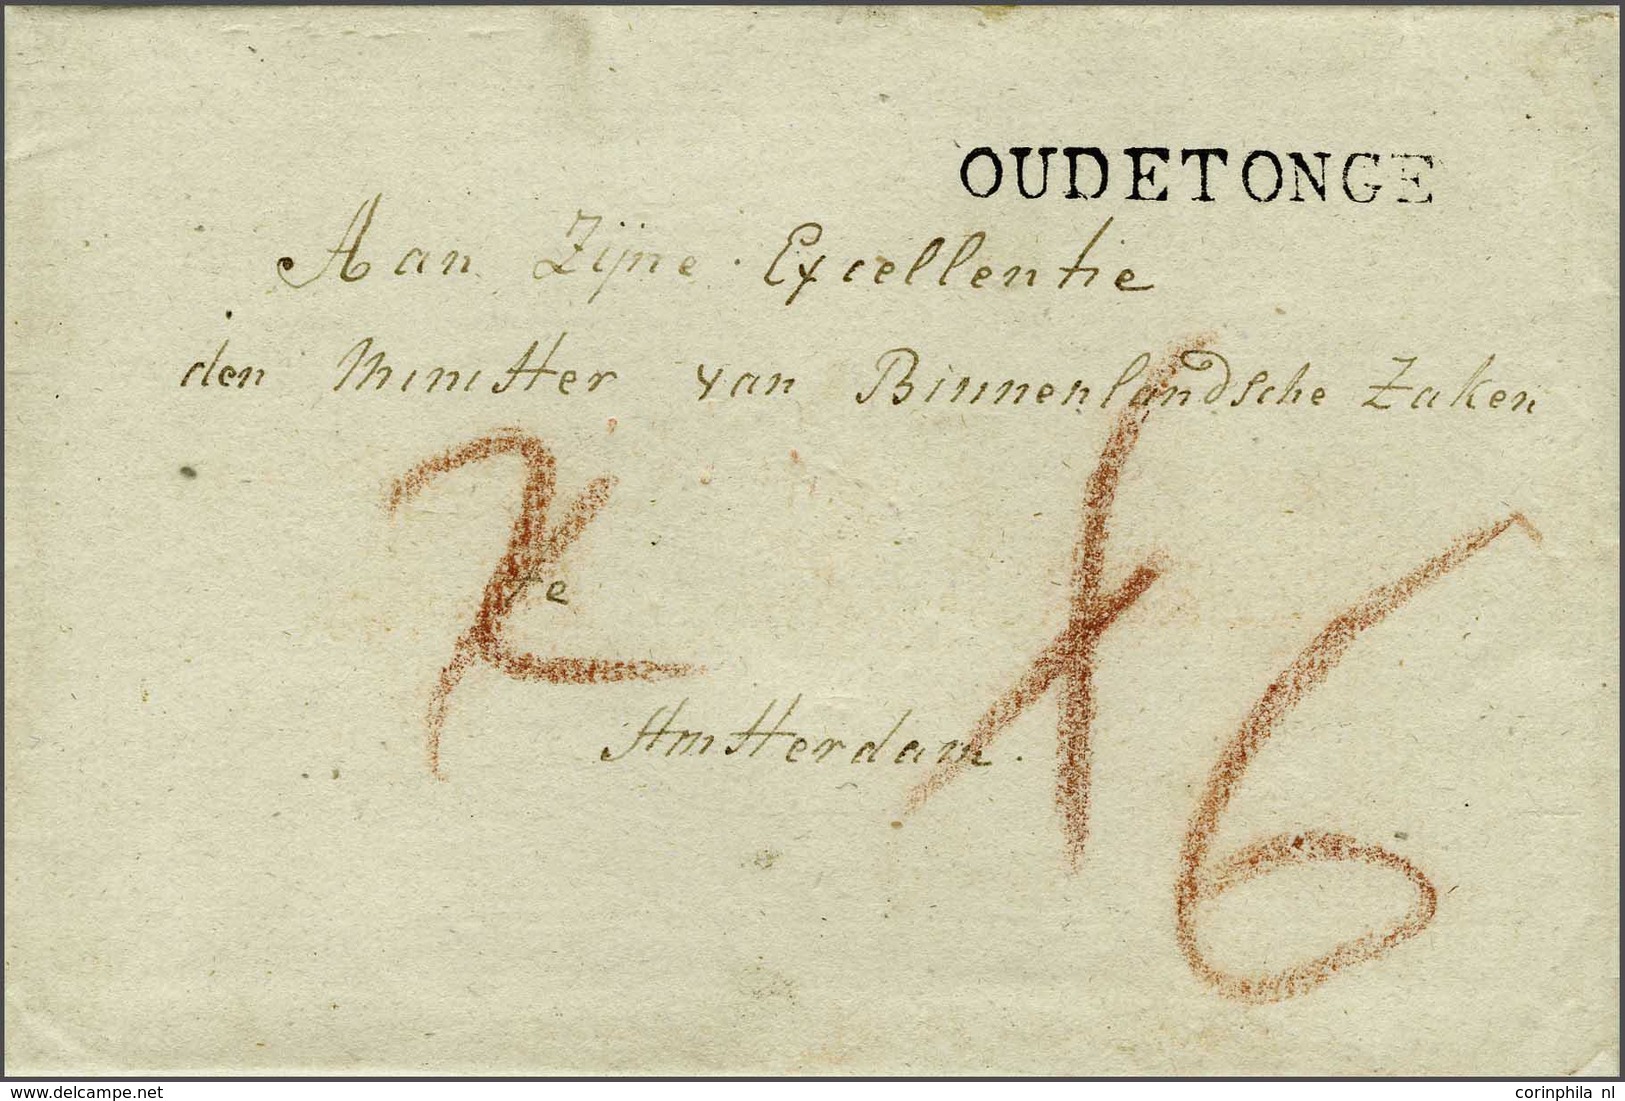 OUDETONGE
Aan Zijne Excellentie
den Minister van Binnenlandsche Zaken
te
Amsterdam.
6
© delcampe.net
corinphila nl